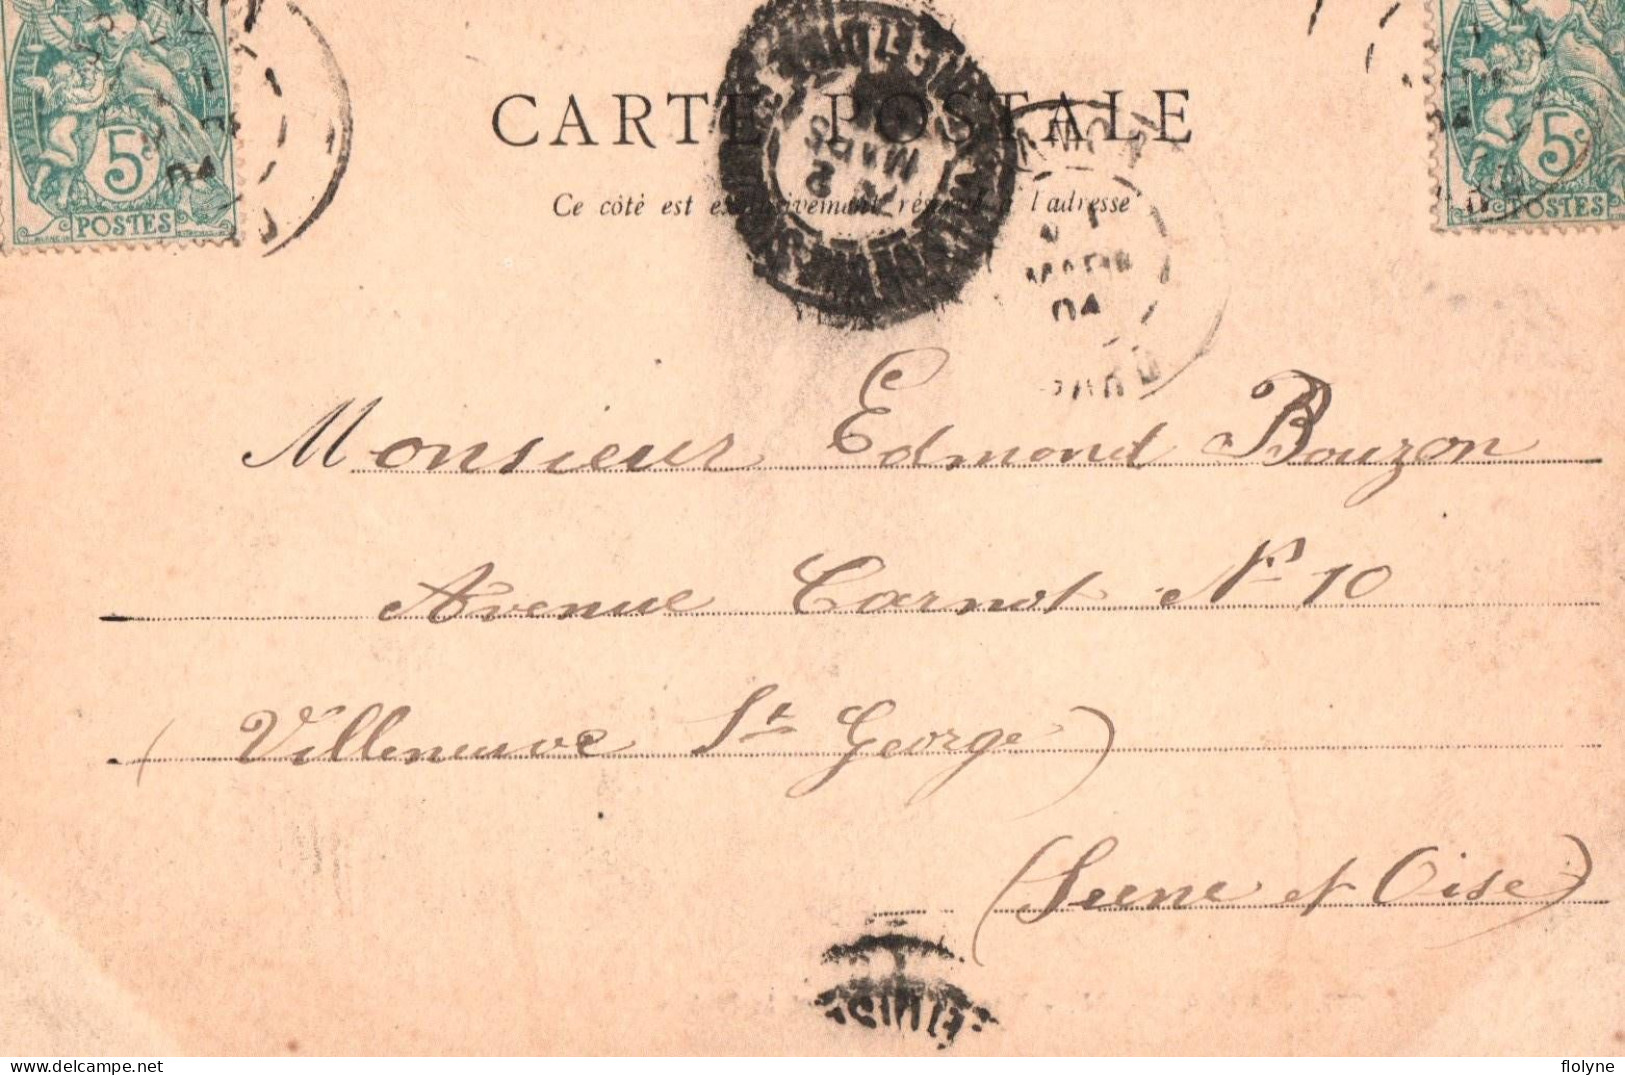 CARTE POSTALE
Ce côté est exclusivement réservé à l'adresse
5c
POSTES
5c
POSTES
2
MARS
MARS
04
Monsieur Edmond Bouzon
Avenue Carnot No 10
(Villeneuve St George)
(Seine et Oise)
Delcampe.net
flolyne